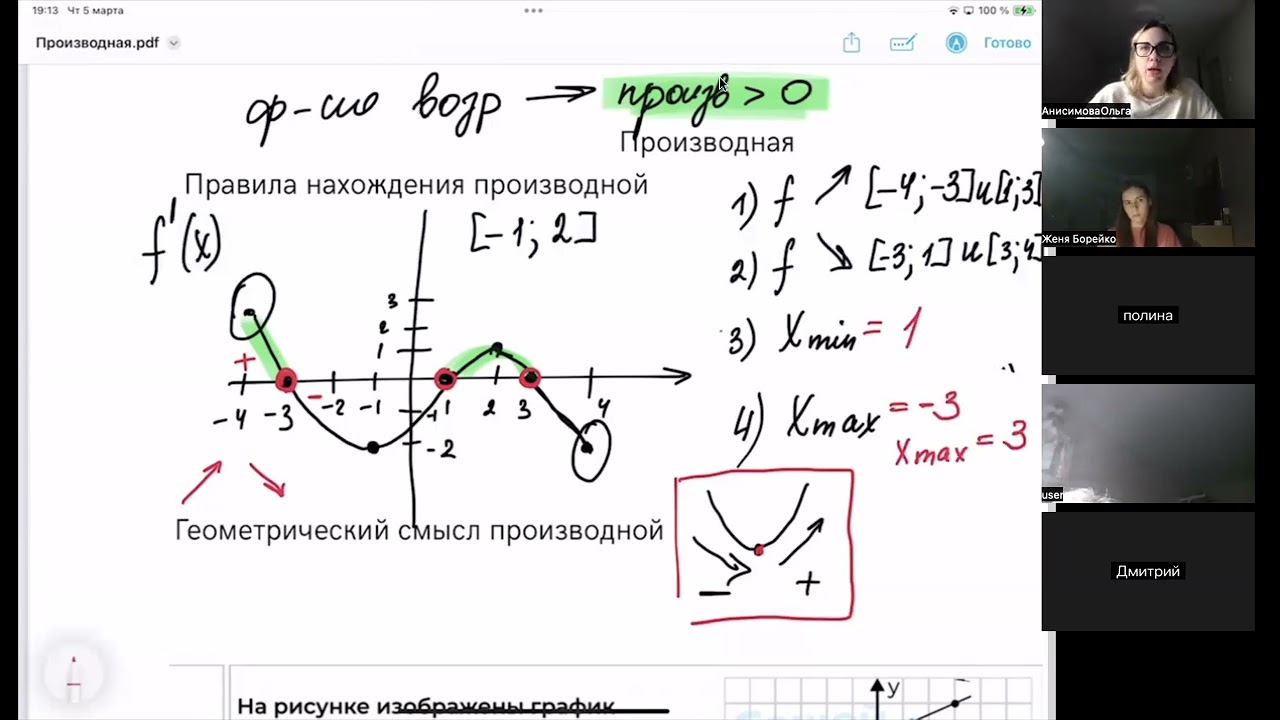 19:13 Чт 5 марта
100 %
Производная.pdf
Готово
ф-ию возр → произв > 0
Производная
Правила нахождения производной
f'(x)
[-1; 2]
1) f ↗ [-4; -3] и [1; 3]
2) f ↘ [-3; 1] и [3; 4]
3) Xmin = 1
4) Xmax = -3
Xmax = 3
3
2
1
+
-
-4 -3 -2 -1 1 2 3 4
-1
-2
Геометрический смысл производной
- +
На рисунке изображены график
y
АнисимоваОльга
Женя Борейко
полина
user
Дмитрий